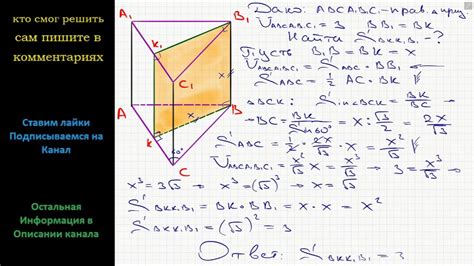 кто смог решить
сам пишите в
комментариях
Ставим лайки
Подписываемся на
Канал
Остальная
Информация в
Описании канала
A₁
B₁
K₁
C₁
x
A
B
K
x
60°
C
Дано: ABCA₁B₁C₁ - прав. призма
V_ABCA₁B₁C₁ = 3 BB₁ = BK
Найти S_BKK₁B₁ - ?
Пусть B₁B = BK = x
V_ABCA₁B₁C₁ = S_ABC · BB₁
S_ABC = 1/2 AC · BK
△BCK: sin∠BCK = BK/BC
BC = BK/sin60° = x : √3/2 = 2x/√3
S_ABC = 1/2 · 2x/√3 · x = x²/√3
V_ABCA₁B₁C₁ = x²/√3 · x = x³/√3 → 3 = x³/√3
x³ = 3√3 → x³ = (√3)³ → x = √3
S_BKK₁B₁ = BK · BB₁ = x · x = x²
S_BKK₁B₁ = (√3)² = 3
Ответ: S_BKK₁B₁ = 3